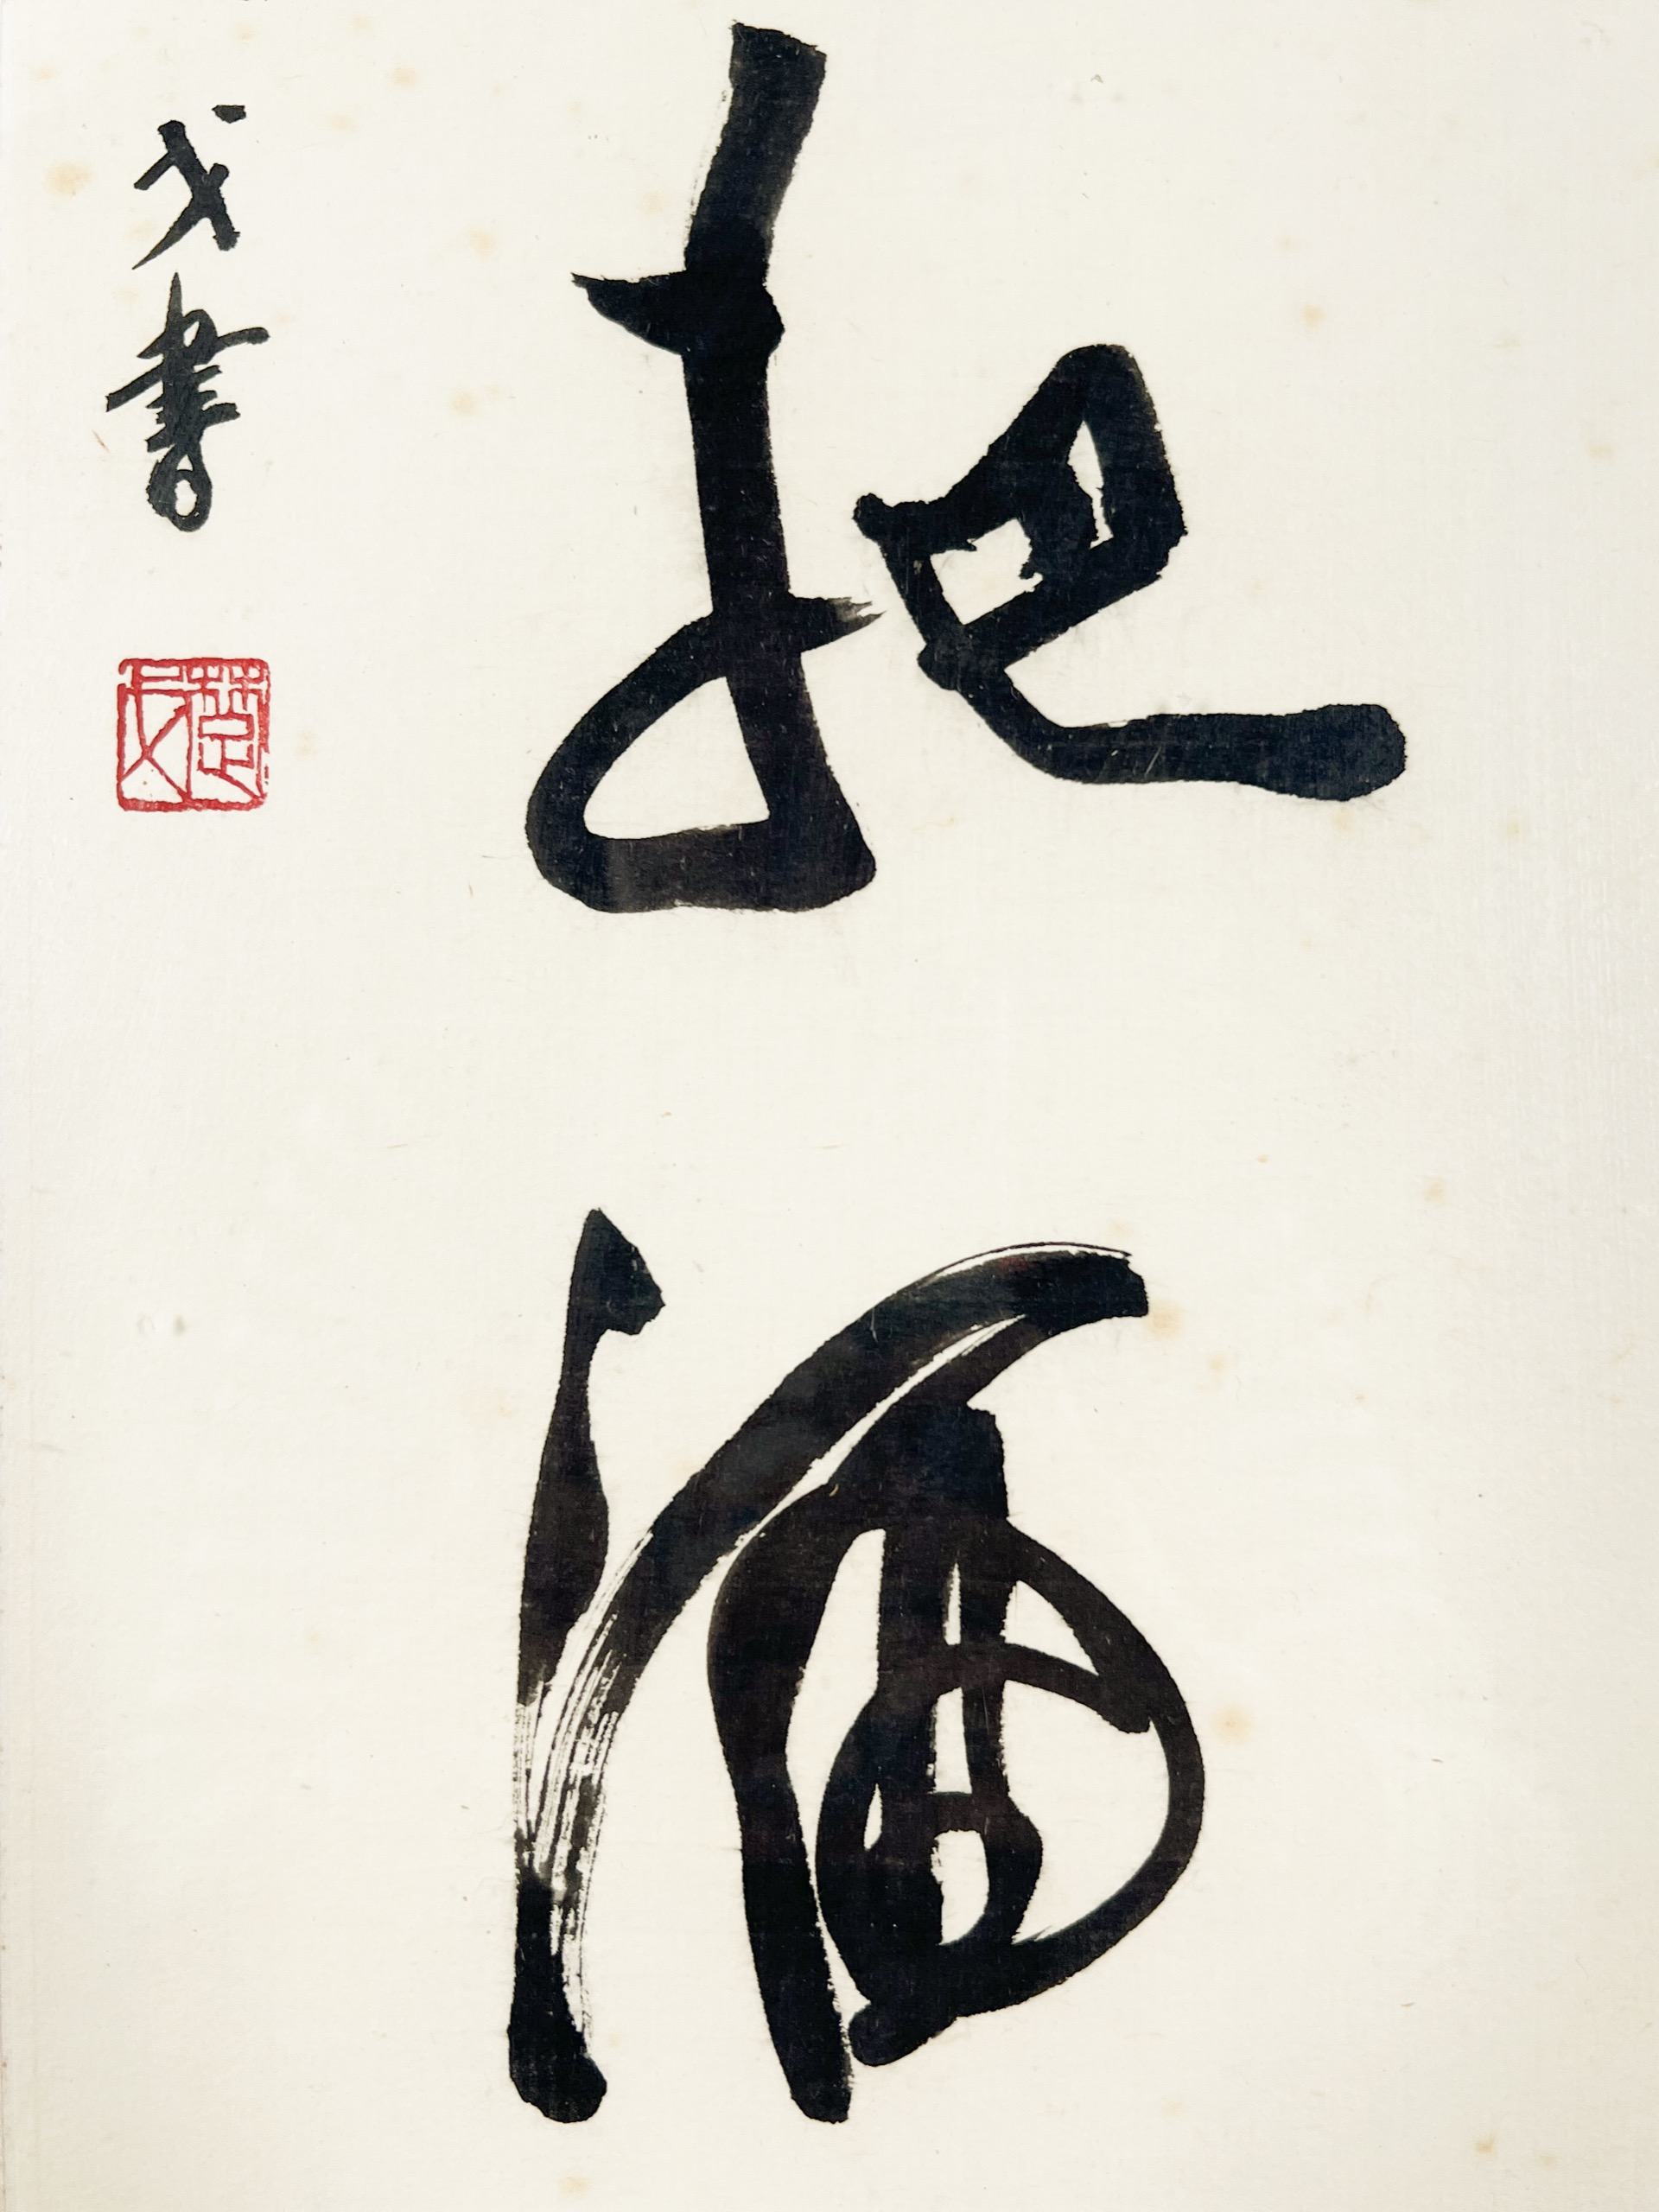 把酒
戈書